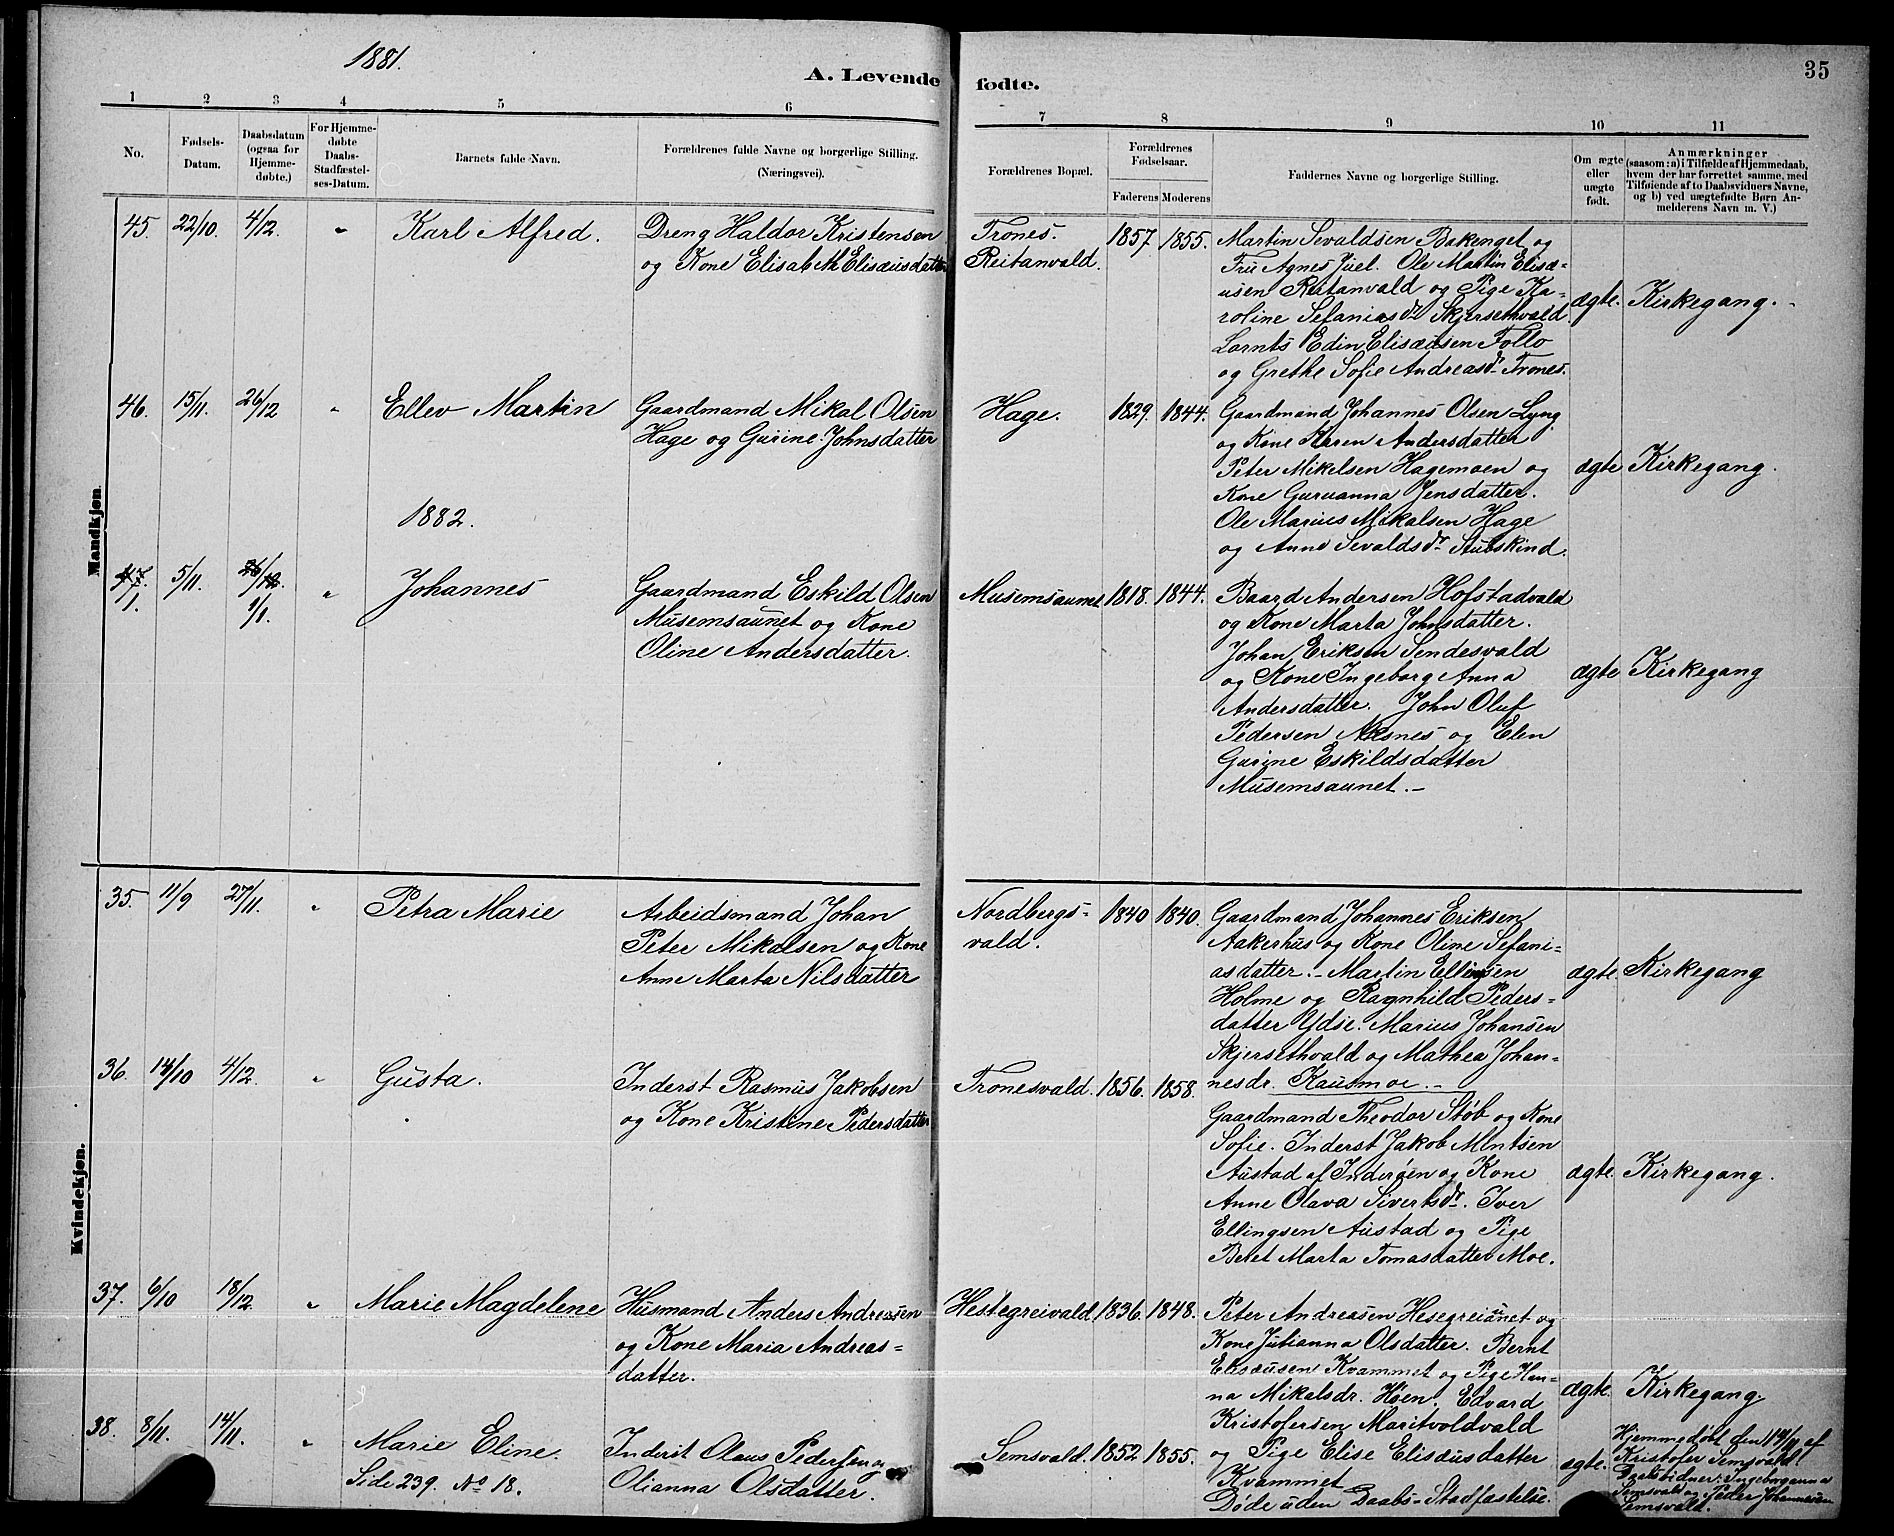 1881.
A. Levende fødte.
35
1 2 3 4 5 6 7 8 9 10 11
No.
Fødsels-
Datum.
Daabsdatum
(ogsaa for
Hjemme-
døbte.)
For Hjemme-
døbte
Daabs-
Stadfæstel-
ses-Datum.
Barnets fulde Navn.
Forældrenes fulde Navne og borgerlige Stilling.
(Næringsvei).
Forældrenes Bopæl.
Forældrenes
Fødselsaar.
Faderens Moderens
Faddernes Navne og borgerlige Stilling.
Om ægte
eller
uægte
født.
Anmærkninger
(saasom: a) i Tilfælde af Hjemmedaab,
hvem der har forrettet samme, med
Tilføiende af to Daabsvidners Navne,
og b) ved uægtefødte Børn An-
melderens Navn m. V.)
Mandkjøn.
45. 22/10. 4/12. " Karl Alfred.
Dreng Haldor Kristensen
og Kone Elisabeth Elisæusdatter
Trones-
Reitanvald.
1857. 1855.
Martin Sevaldsen Bakenget og
Fru Agnes Juel. Ole Martin Elisæ=
usen Reitanvald og Pige Ka-
roline Sefaniasdr Skjersethvald
Lornts Edin Elisæusen Follo
og Grethe Sofie Andreasdr Trones.
ægte. Kirkegang.-
46. 15/11. 26/12 " Ellev Martin
Gaardmand Mikal Olsen
Hage og Gurine Johnsdatter
Hage. 1829. 1844.
Gaardmand Johannes Olsen Lyng
og Kone Karen Andersdatter
Peter Mikelsen Hagemoen og
Kone Guruanna Jensdatter.
Ole Marius Mikalsen Hage
og Anne Sevaldsdr Stubskind.
ægte Kirkegang.
1882.
47.
1. 5/11. 26/12.
1/1. " Johannes
Gaardmand Eskild Olsen
Musemsaunet og Kone
Oline Andersdatter.
Musemsaunet 1818. 1844.
Baard Andersen Hofstadvald
og Kone Marta Johnsdatter.
Johan Eriksen Sendesvald
og Kone Ingeborg Anna
Andersdatter. John Oluf
Pedersen Nesnes og Elen
Gurine Eskildsdatter
Musemsaunet.-
ægte Kirkegang
Kvindekjøn.
35. 11/9 27/11. " Petra Marie
Arbeidsmand Johan
Peter Mikalsen og Kone
Anne Marta Nilsdatter
Nordbergs=
vald.
1840 1840.
Gaardmand Johannes Eriksen
Aakerhus og Kone Oline Sefani=
asdatter.- Martin Ellingsen
Holme og Ragnhild Peders=
datter Ydse. Marius Johansen
Skjersethvald og Mathea Johan=
nesdr. Kausmoe.-
ægte. Kirkegang
36. 14/10 4/12. " Gusta.
Inderst Rasmus Jakobsen
og Kone Kristine Pedersdatter
Tronesvald. 1856. 1858.
Gaardmand Theodor Støb og Kone
Sofie. Inderst Jakob
Austad af Inderøen og Kone
Anne Olava Sivertsdr. Iver
Ellingsen Austad og Pige
Beret Marta Tomasdatter Moe.
ægte. Kirkegang.
37. 6/10 18/12. " Marie Magdelene
Husmand Anders Andreasen
og Kone Maria Andreas=
datter.
Hestegreivald 1836. 1848.
Peter Andreasen Hesegreiaunet og
Kone Julianna Olsdatter. Bernt
Elisæusen Kvammet og Pige Han=
na Mikalsdr. Høen. Edvard
Kristofersen Maritvoldvald
og Pige Elise Elisæusdatter
Kvammet
ægte. Kirkegang
38. 8/11. 14/11. " Marie Eline.
Side 239. No 18.
Inderst Olaus Pedersen og
Olianna Olsdatter.
Semsvald. 1852 1855.
Døde uden Daabs-Stadfæstelse.
ægte.
Hjemmedøbt den 14/11 af
Kristofer Semsvald
Daabsvidner: Ingeborganna
Semsvald og Peder Johannesen
Semsvald.